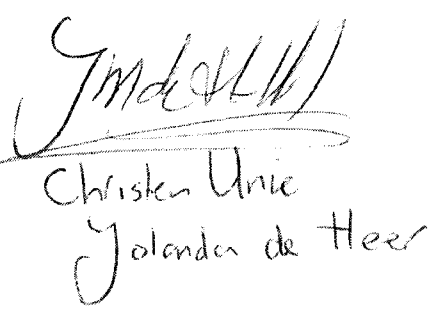 Christen Unie
Yolanda de Heer